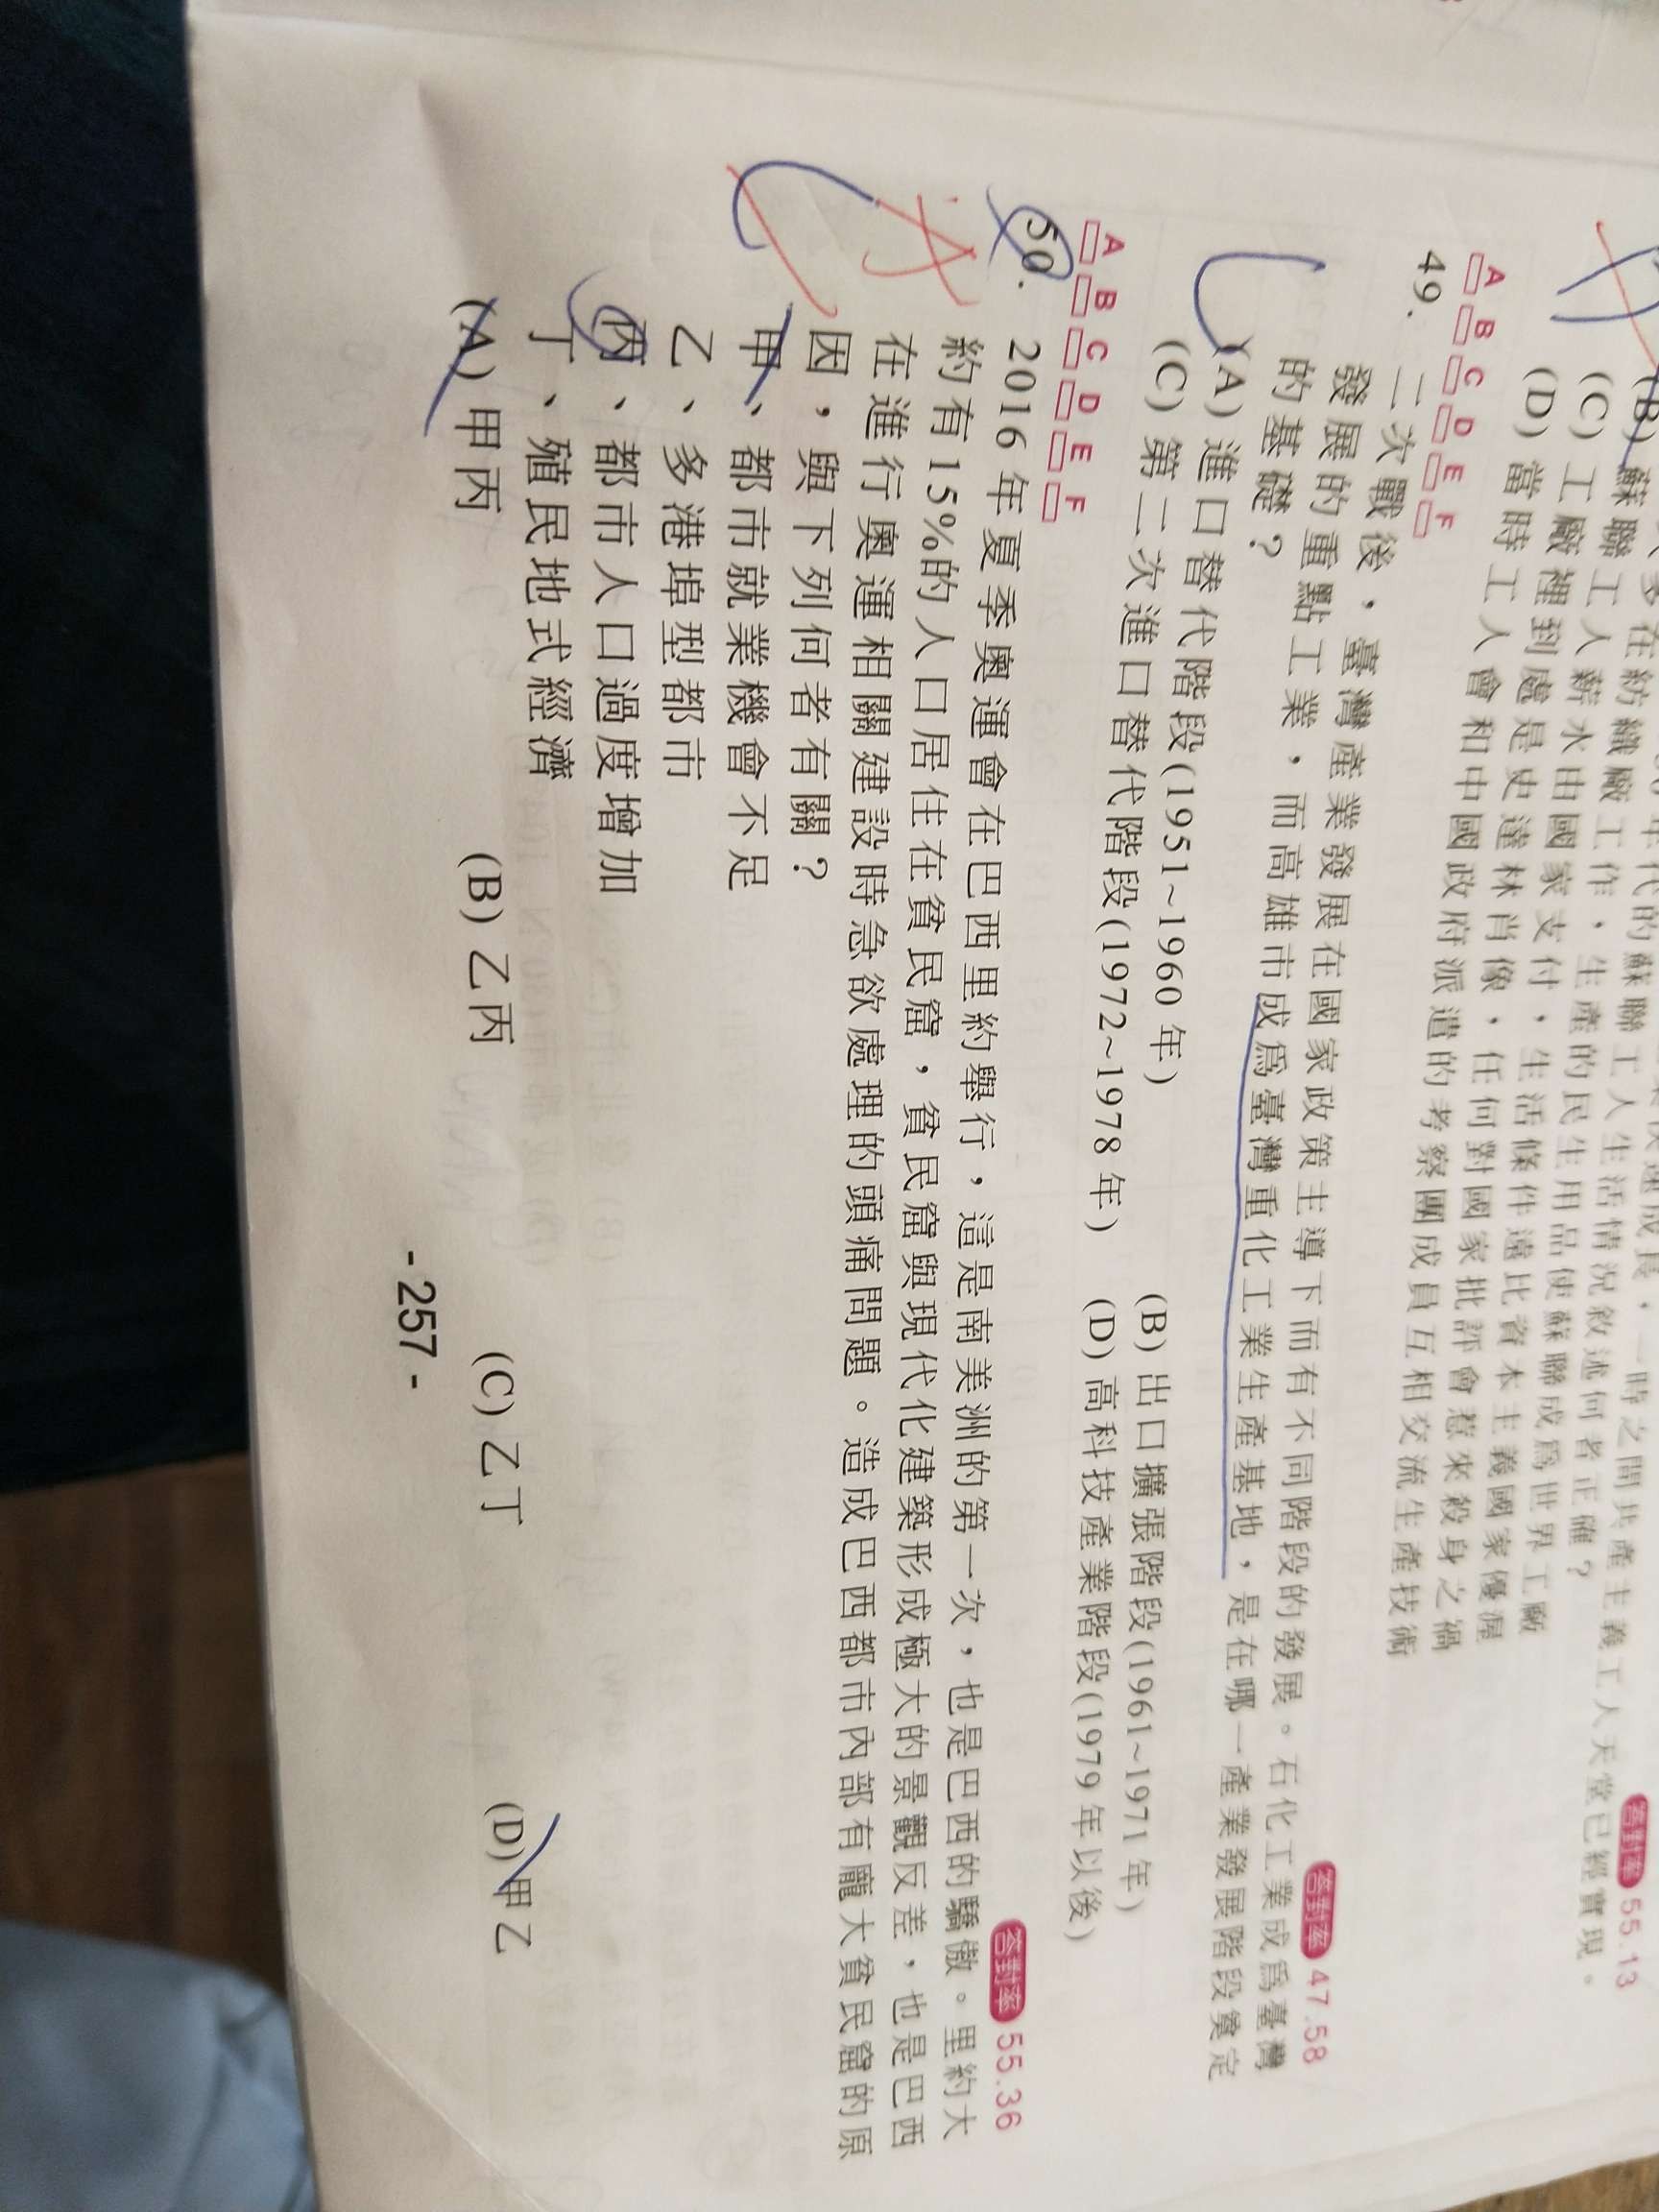 (B) 蘇聯工人薪水由國家支付，生活條件遠比資本主義國家優渥
(C) 工廠裡到處是史達林肖像，任何對國家批評會惹來殺身之禍
(D) 當時工人會和中國政府派遣的考察團成員互相交流生產技術
答對率 55.13
A B C D E F
答對率 47.58
49. 二次戰後，臺灣產業發展在國家政策主導下而有不同階段的發展。石化工業成為臺灣
發展的重點工業，而高雄市成為臺灣重化工業生產基地，是在哪一產業發展階段奠定
的基礎？
(A) 進口替代階段(1951~1960 年)
(B) 出口擴張階段(1961~1971 年)
(C) 第二次進口替代階段(1972~1978 年)
(D) 高科技產業階段(1979 年以後)
A B C D E F
答對率 55.36
50. 2016 年夏季奧運會在巴西里約舉行，這是南美洲的第一次，也是巴西的驕傲。里約大
約有 15%的人口居住在貧民窟，貧民窟與現代化建築形成極大的景觀反差，也是巴西
在進行奧運相關建設時急欲處理的頭痛問題。造成巴西都市內部有龐大貧民窟的原
因，與下列何者有關？
甲、都市就業機會不足
乙、多港埠型都市
丙、都市人口過度增加
丁、殖民地式經濟
(A) 甲丙
(B) 乙丙
(C) 乙丁
(D) 甲乙
A
C
C
- 257 -